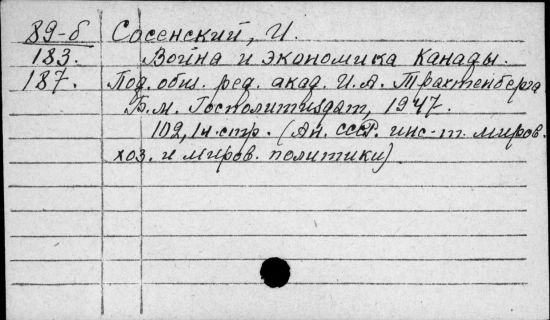 89-б Сосенский, И.
183. Война и экономика Канады.
187. Под. общ. ред. акад. И. А. Трахтенберга
Б. м. Госполитиздат, 1947.
102, 1 н. стр. (Ан. СССР. инс-т. миров.
хоз. и миров. политики)